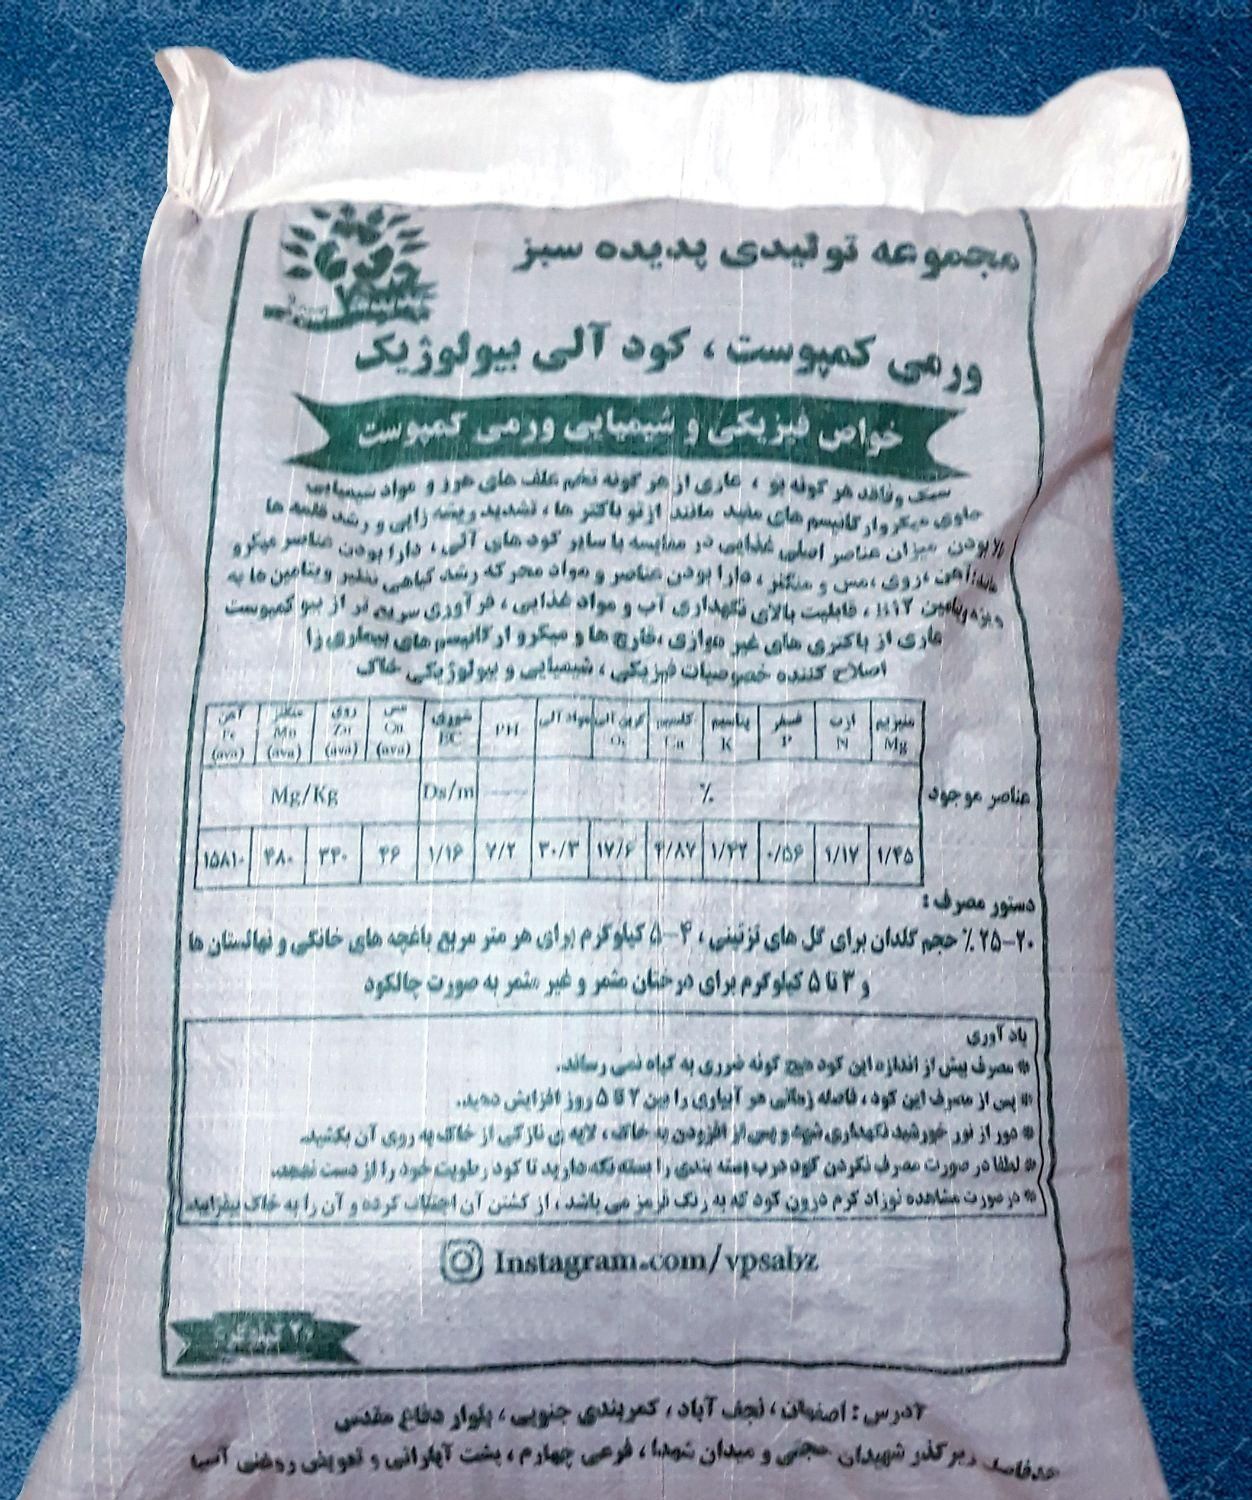 مجموعه تولیدی پدیده سبز
ورمی کمپوست ، کود آلی بیولوژیک
خواص فیزیکی و شیمیایی ورمی کمپوست
سبک وفاقد هر گونه بو ، عاری از هر گونه تخم علف های هرز و مواد شیمیایی
حاوی میکروارگانیسم های مفید مانند ازتو باکتر ها ، تشدید ریشه زایی و رشد قلمه ها
بالا بودن میزان عناصر اصلی غذایی در مقایسه با سایر کود های آلی ، دارا بودن عناصر میکرو
مانند:آهن ،روی ،مس و منگنز ، دارا بودن عناصر و مواد محرکه رشد گیاهی نظیر ویتامین ها به
ویژه ویتامین B12 ، قابلیت بالای نگهداری آب و مواد غذایی ، فرآوری سریع تر از بیو کمپوست
عاری از باکتری های غیر هوازی ،قارچ ها و میکرو ارگانیسم های بیماری زا
اصلاح کننده خصوصیات فیزیکی ، شیمیایی و بیولوژیکی خاک
منیزیم ازت فسفر پتاسیم کلسیم کربن آلی موادآلی PH شوری مس روی منگنز آهن
Mg N P K Ca EC Cu Zn Mn Fe
(ava) (ava) (ava) (ava)
عناصر موجود % Ds/m Mg/Kg
۱/۴۵ ۱/۱۷ ۰/۵۶ ۱/۲۲ ۴/۸۷ ۱۷/۶ ۳۰/۳ ۷/۲ ۱/۱۶ ۴۶ ۳۳۰ ۴۸۰ ۱۵۸۱۰
دستور مصرف :
۲۰-۲۵ % حجم گلدان برای گل های تزئینی ، ۴-۵ کیلوگرم برای هر متر مربع باغچه های خانگی و نهالستان ها
و ۳ تا ۵ کیلوگرم برای درختان مثمر و غیر مثمر به صورت چالکود
یاد آوری
* مصرف بیش از اندازه این کود هیچ گونه ضرری به گیاه نمی رساند.
* پس از مصرف این کود ، فاصله زمانی هر آبیاری را بین ۲ تا ۵ روز افزایش دهید.
* دور از نور خورشید نگهداری شود و پس از افزودن به خاک ، لایه ی نازکی از خاک به روی آن بکشید.
* لطفا در صورت مصرف نکردن کود درب بسته بندی را بسته نگه دارید تا کود رطوبت خود را از دست ندهد.
* در صورت مشاهده نوزاد کرم درون کود که به رنگ قرمز می باشد ، از کشتن آن اجتناب کرده و آن را به خاک بیفزایید.
Instagram.com/vpsabz
۲۰ کیلوگرم
آدرس : اصفهان ، نجف آباد ، کمربندی جنوبی ، بلوار دفاع مقدس
حدفاصل زیرگذر شهیدان حجتی و میدان شهدا ، فرعی چهارم ، پشت آپاراتی و تعویض روغنی آسیا